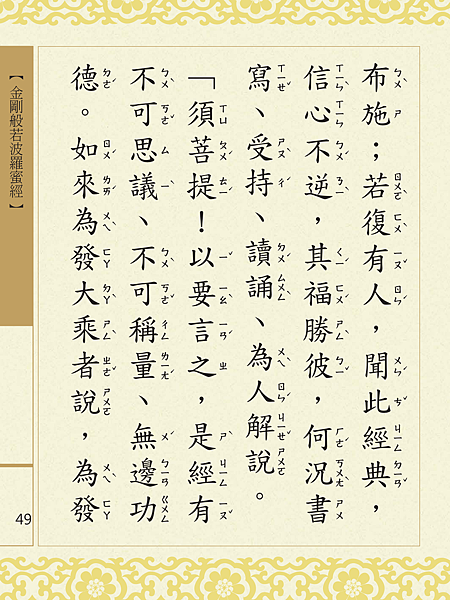 布施；若復有人，聞此經典，
信心不逆，其福勝彼，何況書
寫、受持、讀誦、為人解說。
「須菩提！以要言之，是經有
不可思議、不可稱量、無邊功
德。如來為發大乘者說，為發
【金剛般若波羅蜜經】
49